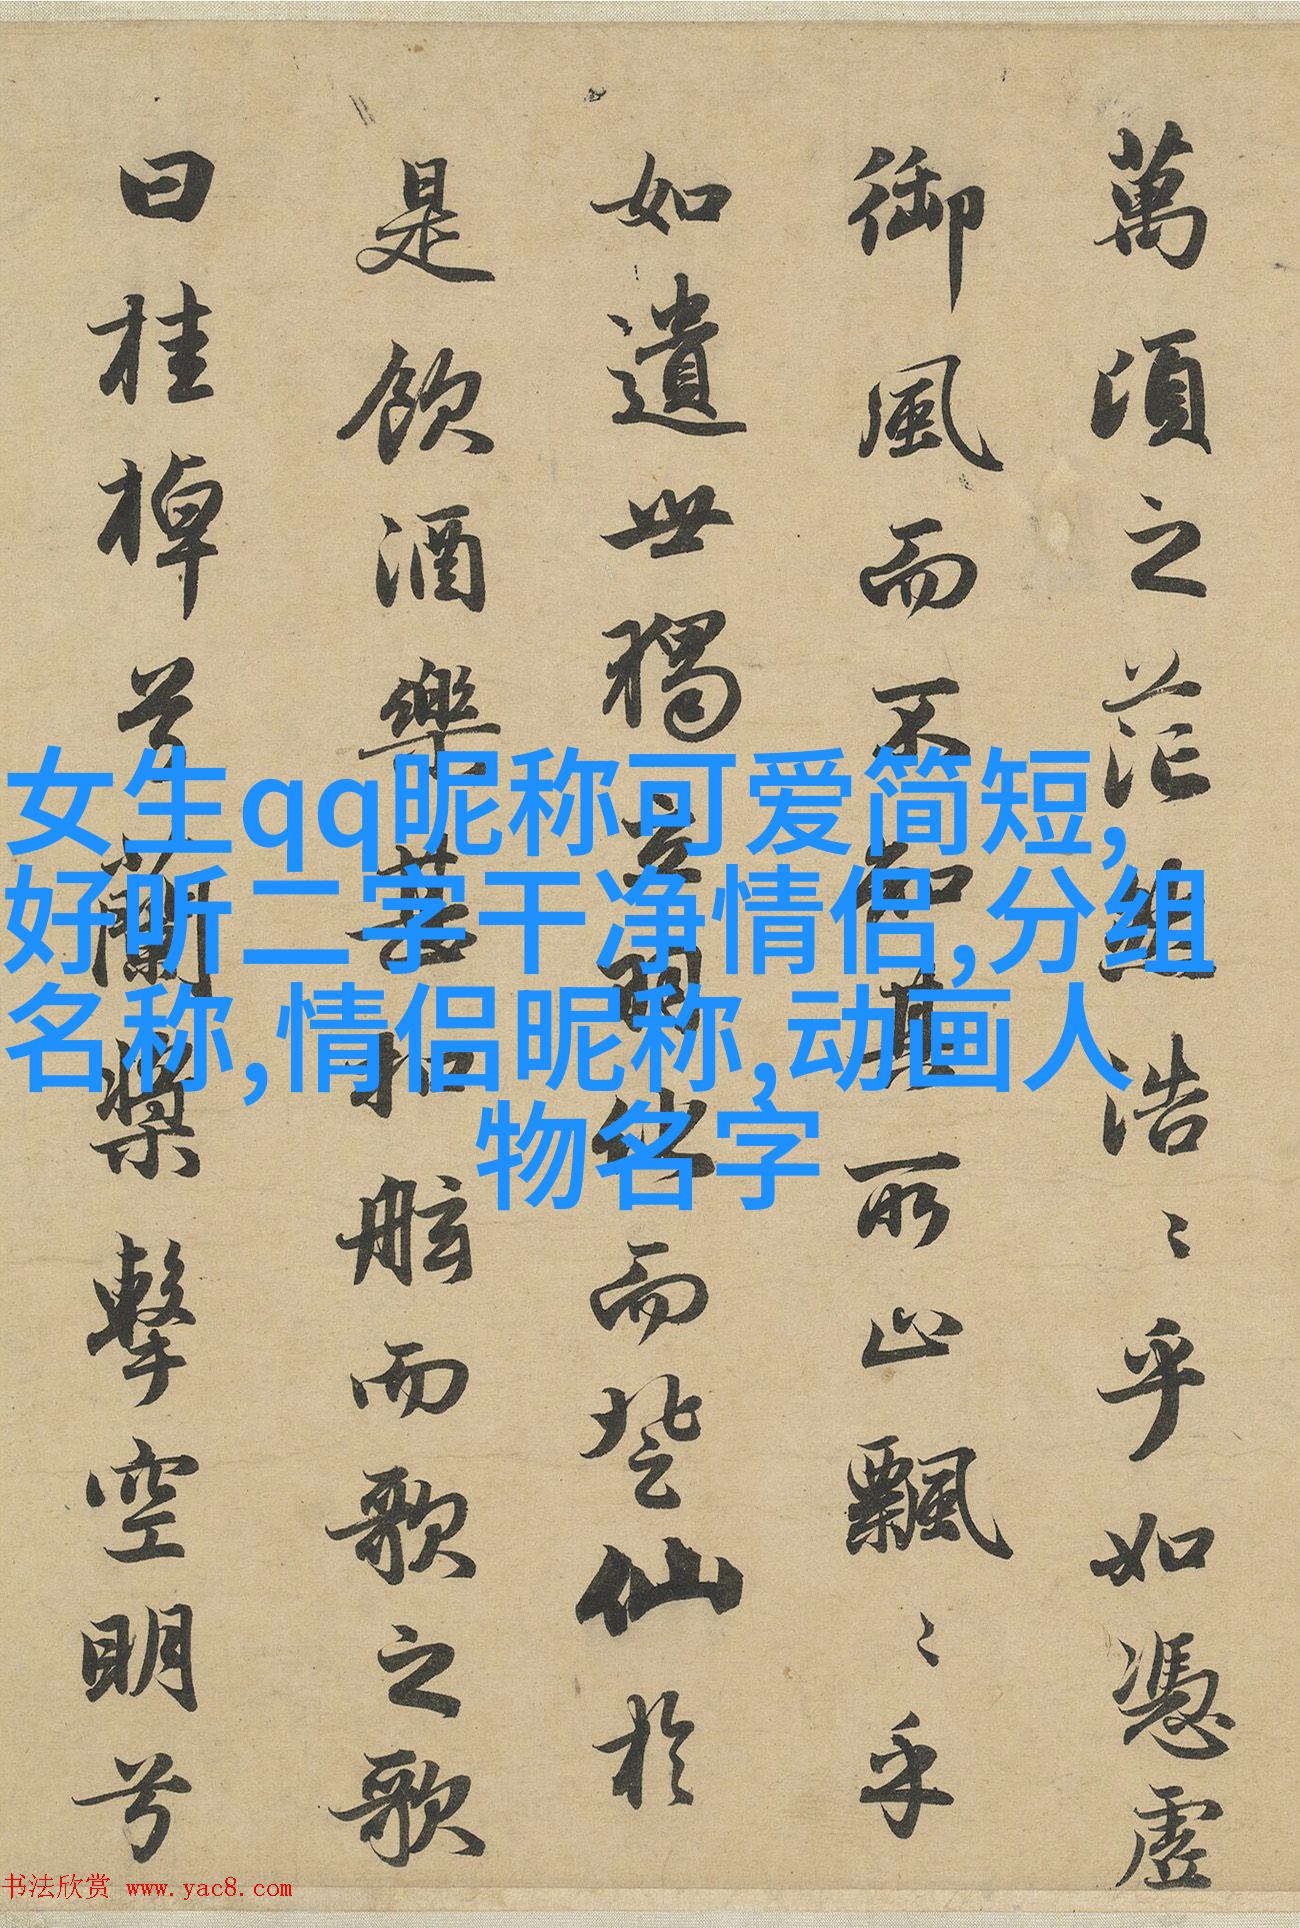 萬頃之茫浩〻乎如憑虛
御風而不知其所止飄〻乎
如遺世獨立羽化而登仙於
是飲酒樂甚扣舷而歌之歌
曰桂棹兮蘭槳擊空明兮
女生qq昵称可爱简短,
好听二字干净情侣,分组
名称,情侣昵称,动画人
物名字
书法欣赏 www.yac8.com